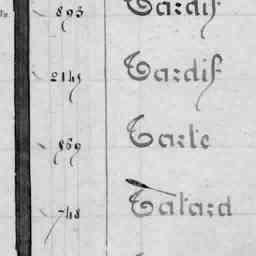 893 Tardif
2145 Tardif
869 Tarte
748 Tatard